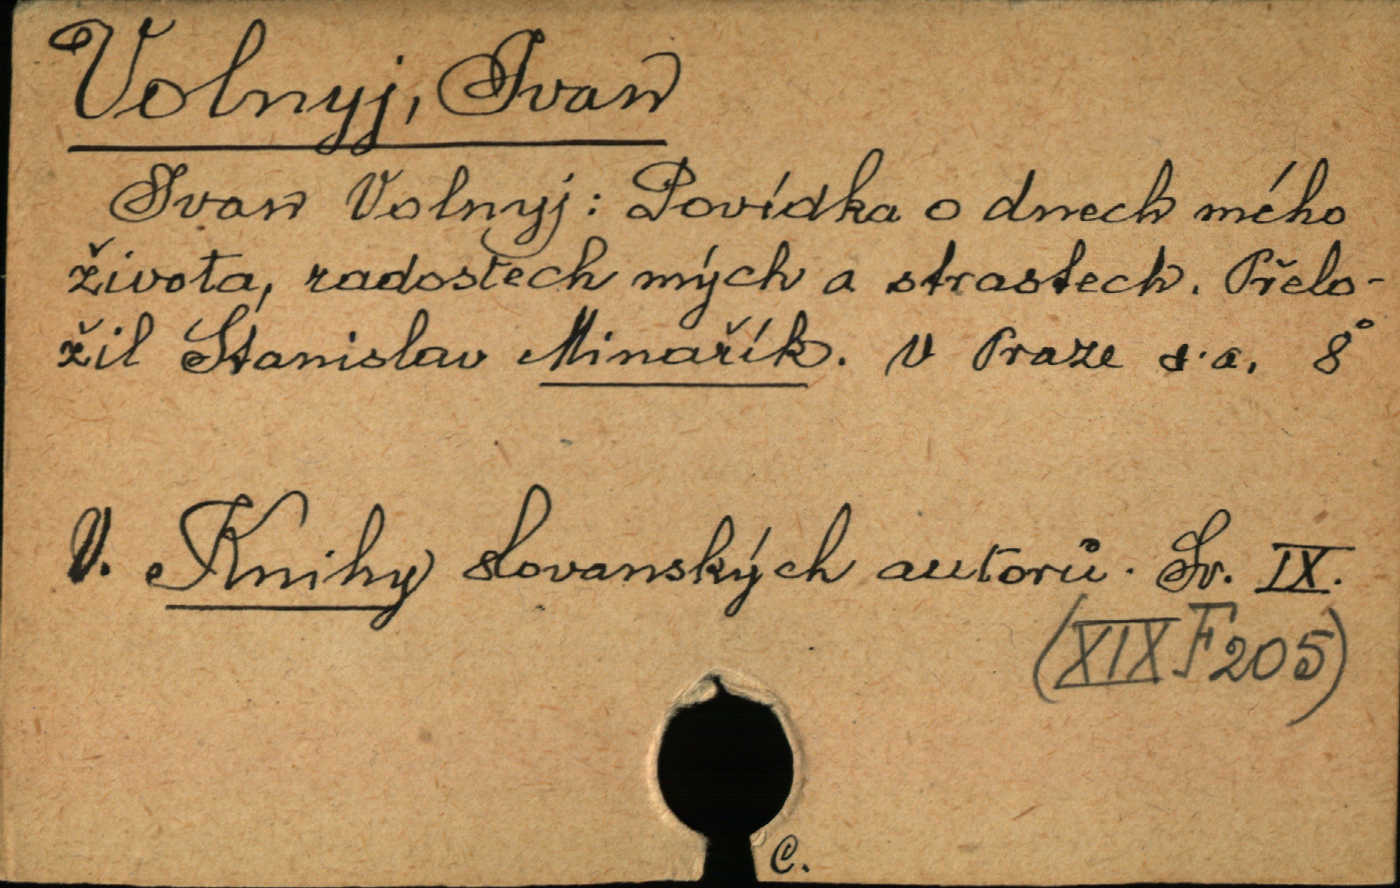 Volnyj, Ivan
Ivan Volnyj: Povídka o dnech mého
života, radostech mých a strastech. Přelo-
žil Stanislav Minařík. V Praze s.a. 8°
V. Knihy slovanských autorů. Sv. IX.
(XIX F 205)
C.